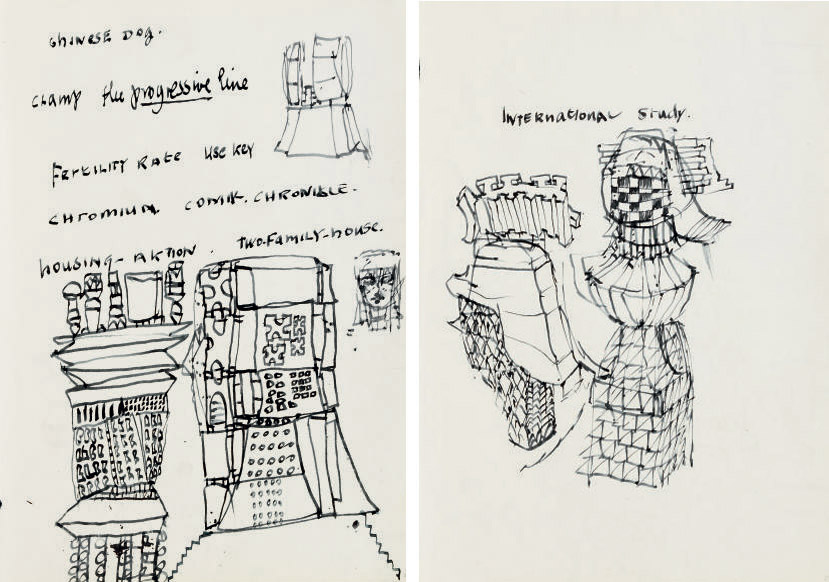 CHINESE DOG.
CLAMP the progressive line
FERTILITY RATE USE KEY
CHROMIUM COMIK. CHRONIBLE.
HOUSING-AKTION. TWO-FAMILY-HOUSE.
INTERNATIONAL STUDY.